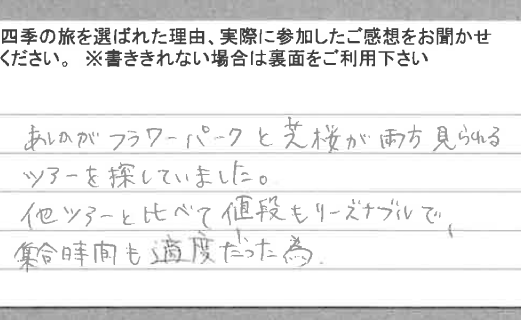 四季の旅を選ばれた理由、実際に参加したご感想をお聞かせ
ください。 ※書ききれない場合は裏面をご利用下さい
あしかがフラワーパークと芝桜が両方見られる
ツアーを探していました。
他ツアーと比べて値段もリーズナブルで、
集合時間も適度だった為.